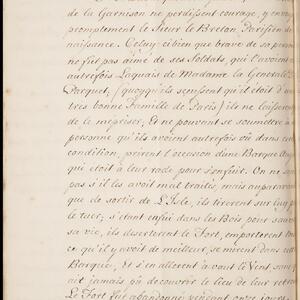 de la Garnison ne perdissent courage, y envoya
promptement le Sieur le Breton, Parisien de
naissance. Celuy-ci bien que brave de sa personne
ne fut pas aimé de ses Soldats, qui l'avoient vu
autrefois Laquais de Madame la Generale du
Parquet; (quoyqu'ils sçussent qu'il étoit d'une
très bonne famille de Paris) ils ne laisserent
de le mepriser; Et ne pouvant se soumettre à une
personne qu'ils avoient autrefois vû dans cette
condition, prirent l'occasion d'une Barque Ang
qui étoit à leur rade pour s'enfuir. On ne sait
pas s'il les avoit mal traités, mais auparavant
que de sortir de L'Isle, ils tirerent sur luy pour
le tuer; s'étant enfui dans les Bois pour sauver
sa vie, ils deserterent le Fort, emporterent tout
ce qu'il y avoit de meilleur, se mirent dans cette
Barque, Et s'en allerent à vaut le Vent sans qu'
ait jamais pû decouvrir le lieu de leur retraite
Le Fort fut abandonné pendant onze jours